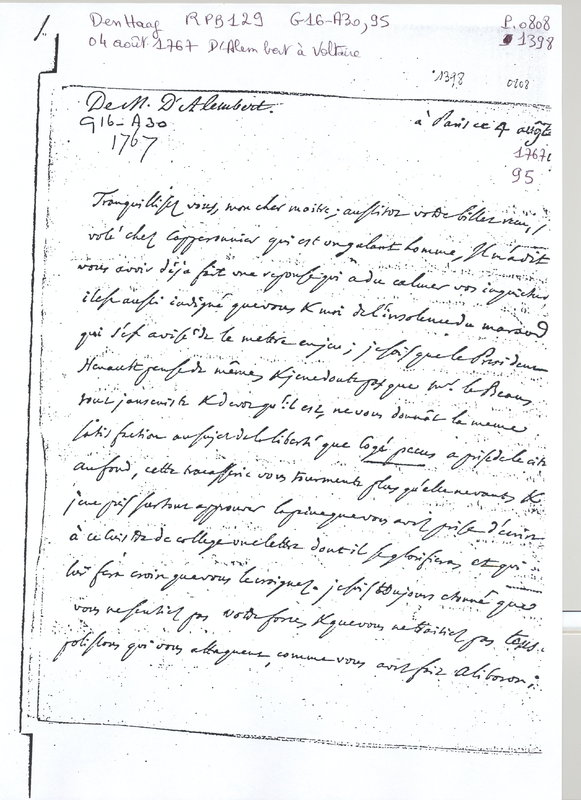 1. Den Haag RPB129 G16-A30,95 P.0808
1398
04 août 1767 D'Alembert à Voltaire
1398 0808
De M. D'Alembert.
G16-A30
1767
à Paris ce 4 augte
1767.
95
Tranquillisez vous, mon cher maitre; aussitot votre billet recu, j
volé chez Capperonnier qui est un galant homme, Il m'a dit
vous avoir déja fait une reponse qui a du calmer vos inquietudes,
il est aussi indigné que vous & moi de l'insolence du maraud
qui s'est avisé de le mettre en jeu; je sçais que le President
Henault pense de même, & je ne doute pas que Mr. le Beau,
tout janseniste & devot qu'il est, ne vous donnât la meme
satisfaction au sujet de la liberté que Cogé pecus a prise de le citer
au fond, cette tracasserie vous tourmente plus qu'elle ne vaut, &
je ne puis surtout approuver la peine que vous avez prise d'ecrire
à ce cuistre de college une lettre dont il se glorifiera, et qui
lui fera croire que vous le craignez. je suis toujours etonné que
vous ne sentiez pas votre force, & que vous ne traitiez pas tous
polissons qui vous attaquent, comme vous avez fait Aliboron;